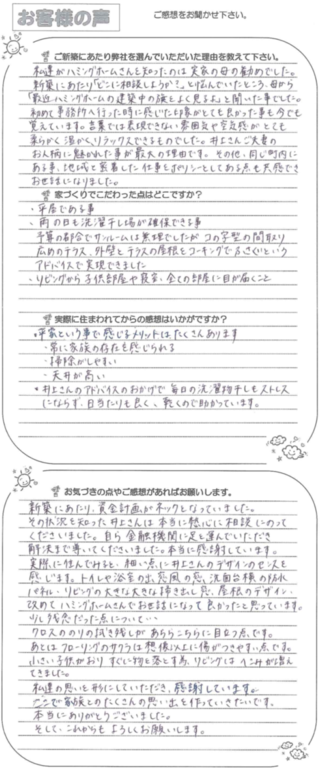 お客様の声
ご感想をお聞かせ下さい。
ご新築にあたり弊社を選んでいただいた理由を教えて下さい。
私達がハミングホームさんを知ったのは実家の母の勧めでした。
新築にあたり「どこに相談しようか？」と悩んでいたところ、母から
「最近ハミングホームの建築中の旗をよく見るよ」と聞いた事でした。
初めて事務所へ行った時に感じた印象がとても良かった事を今でも
覚えています。言葉では表現できない雰囲気や空気感がとても
柔らかく温かくリラックスできるものでした。井上さんご夫妻の
お人柄に魅かれた事が最大の理由です。その他、同じ町内に
ある事、地域と密着した仕事をポリシーとしてある点も共感でき
お世話になりました。
家づくりでこだわった点はどこですか？
・平屋である事
・雨の日も洗濯干し場が確保できる事
予算の都合でサンルームは無理でしたが コの字型の間取り
広めのテラス、外壁とテラスの屋根をコーキングでふさぐという
アドバイスで実現できました
・リビングから子供部屋や寝室、全ての部屋に目が届くこと
実際に住まわれてからの感想はいかがですか？
・平家という事で感じるメリットはたくさんあります
・常に家族の存在を感じられる
・掃除がしやすい
・天井が高い
・井上さんのアドバイスのおかげで毎日の洗濯物干しもストレス
にならず、日当たりも良く、乾くので助かっています。
お気づきの点やご感想があればお願いします。
新築にあたり、資金計画がネックとなっていました。
その状況を知った井上さんは本当に熱心に相談にのって
くださいました。自ら金融機関に足を運んでいただき
解決まで導いてくださいました。本当に感謝しています。
実際に住んでみると、細い点に井上さんのデザインのセンスを
感じます。トイレや浴室の出窓風の窓、洗面台横の防水
パネル、リビングの大きな大きな掃き出し窓、屋根のデザイン・
改めてハミングホームさんでお世話になって良かったと思っています。
少し残念だった点について…
クロスののりの拭き残しがあちらこちらに目立つ点です。
あとはフローリングのサクラは想像以上に傷がつきやすい点です。
小さい子供がおり すぐに物を落とす為、リビングはへこみが増え
てきました。
私達の思いを形にしていただき、感謝しています。
ここで家族とのたくさんの思い出を作っていきたいです。
本当にありがとうございました。
そして、これからもよろしくお願いします。